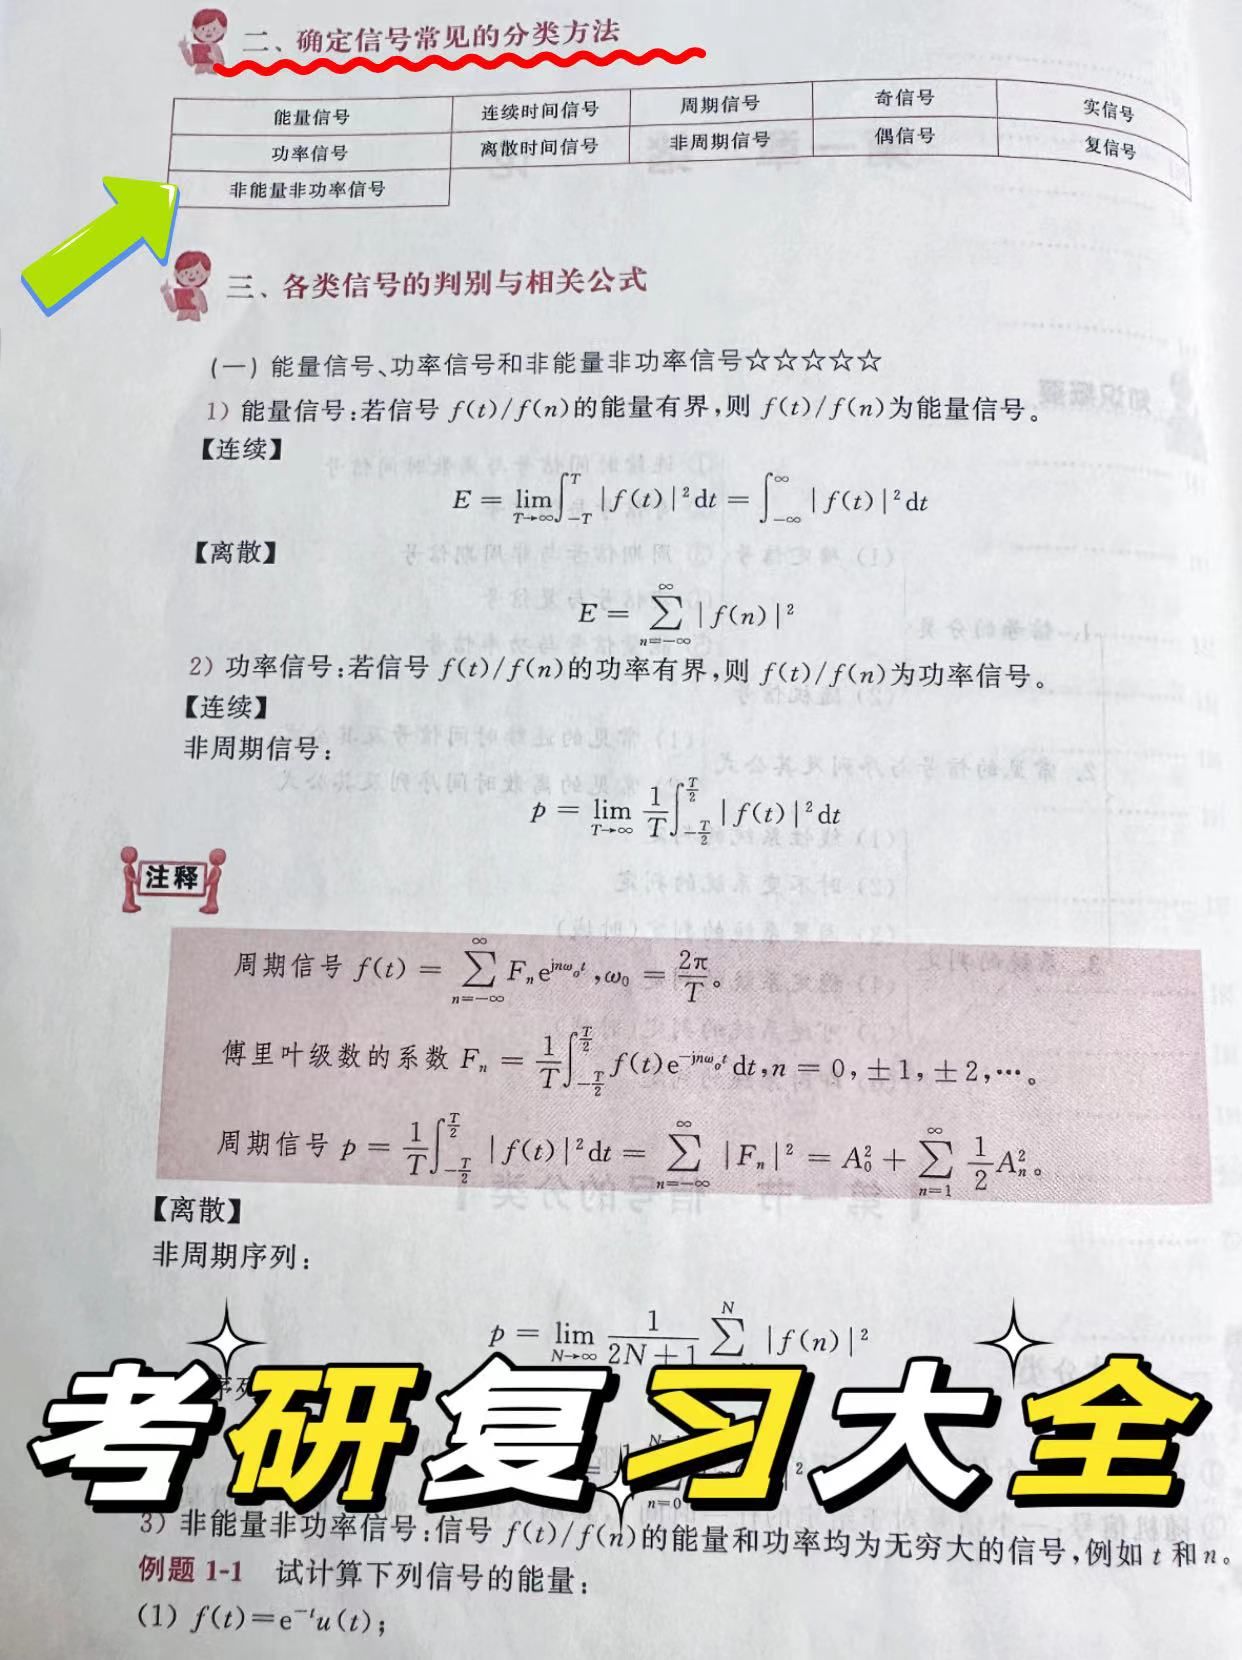 二、确定信号常见的分类方法
能量信号 连续时间信号 周期信号 奇信号 实信号
功率信号 离散时间信号 非周期信号 偶信号 复信号
非能量非功率信号
三、各类信号的判别与相关公式
(一) 能量信号、功率信号和非能量非功率信号☆☆☆☆☆
1) 能量信号:若信号 f(t)/f(n)的能量有界,则 f(t)/f(n)为能量信号。
【连续】
E = lim_{T→∞} ∫_{-T}^{T} |f(t)|² dt = ∫_{-∞}^{∞} |f(t)|² dt
【离散】
E = ∑_{n=-∞}^{∞} |f(n)|²
2) 功率信号:若信号 f(t)/f(n)的功率有界,则 f(t)/f(n)为功率信号。
【连续】
非周期信号:
p = lim_{T→∞} 1/T ∫_{-T/2}^{T/2} |f(t)|² dt
注释
周期信号 f(t) = ∑_{n=-∞}^{∞} F_n e^{jnω₀t}, ω₀ = 2π/T。
傅里叶级数的系数 F_n = 1/T ∫_{-T/2}^{T/2} f(t)e^{-jnω₀t} dt, n = 0, ±1, ±2, ⋯。
周期信号 p = 1/T ∫_{-T/2}^{T/2} |f(t)|² dt = ∑_{n=-∞}^{∞} |F_n|² = A₀² + ∑_{n=1}^{∞} 1/2 A_n²。
【离散】
非周期序列:
p = lim_{N→∞} 1/(2N+1) ∑^{N} |f(n)|²
考研复习大全
3) 非能量非功率信号:信号 f(t)/f(n)的能量和功率均为无穷大的信号,例如 t 和 n。
例题 1-1 试计算下列信号的能量:
(1) f(t)=e^{-t}u(t);